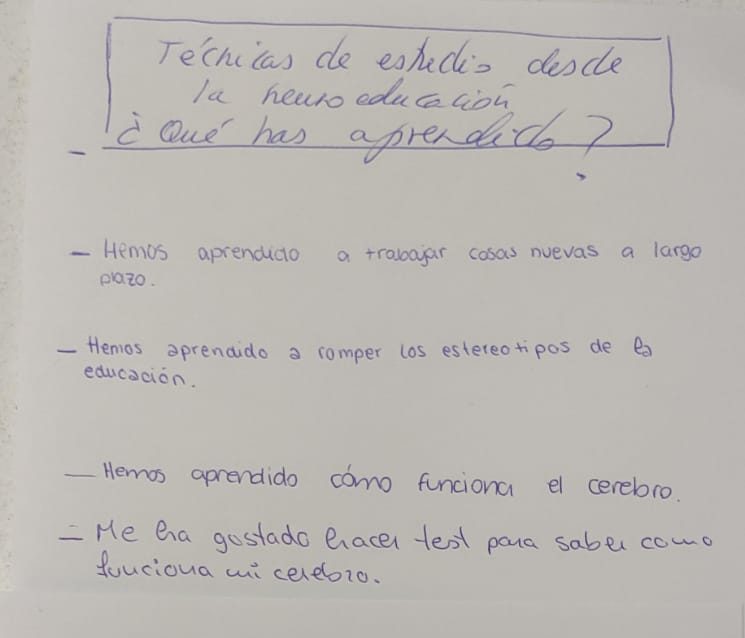 Técnicas de estudio desde
la neuroeducación
¿Qué has aprendido?
- Hemos aprendido a trabajar cosas nuevas a largo
plazo.
- Hemos aprendido a romper los estereotipos de la
educación.
- Hemos aprendido cómo funciona el cerebro.
- Me ha gustado hacer test para saber como
funciona mi cerebro.